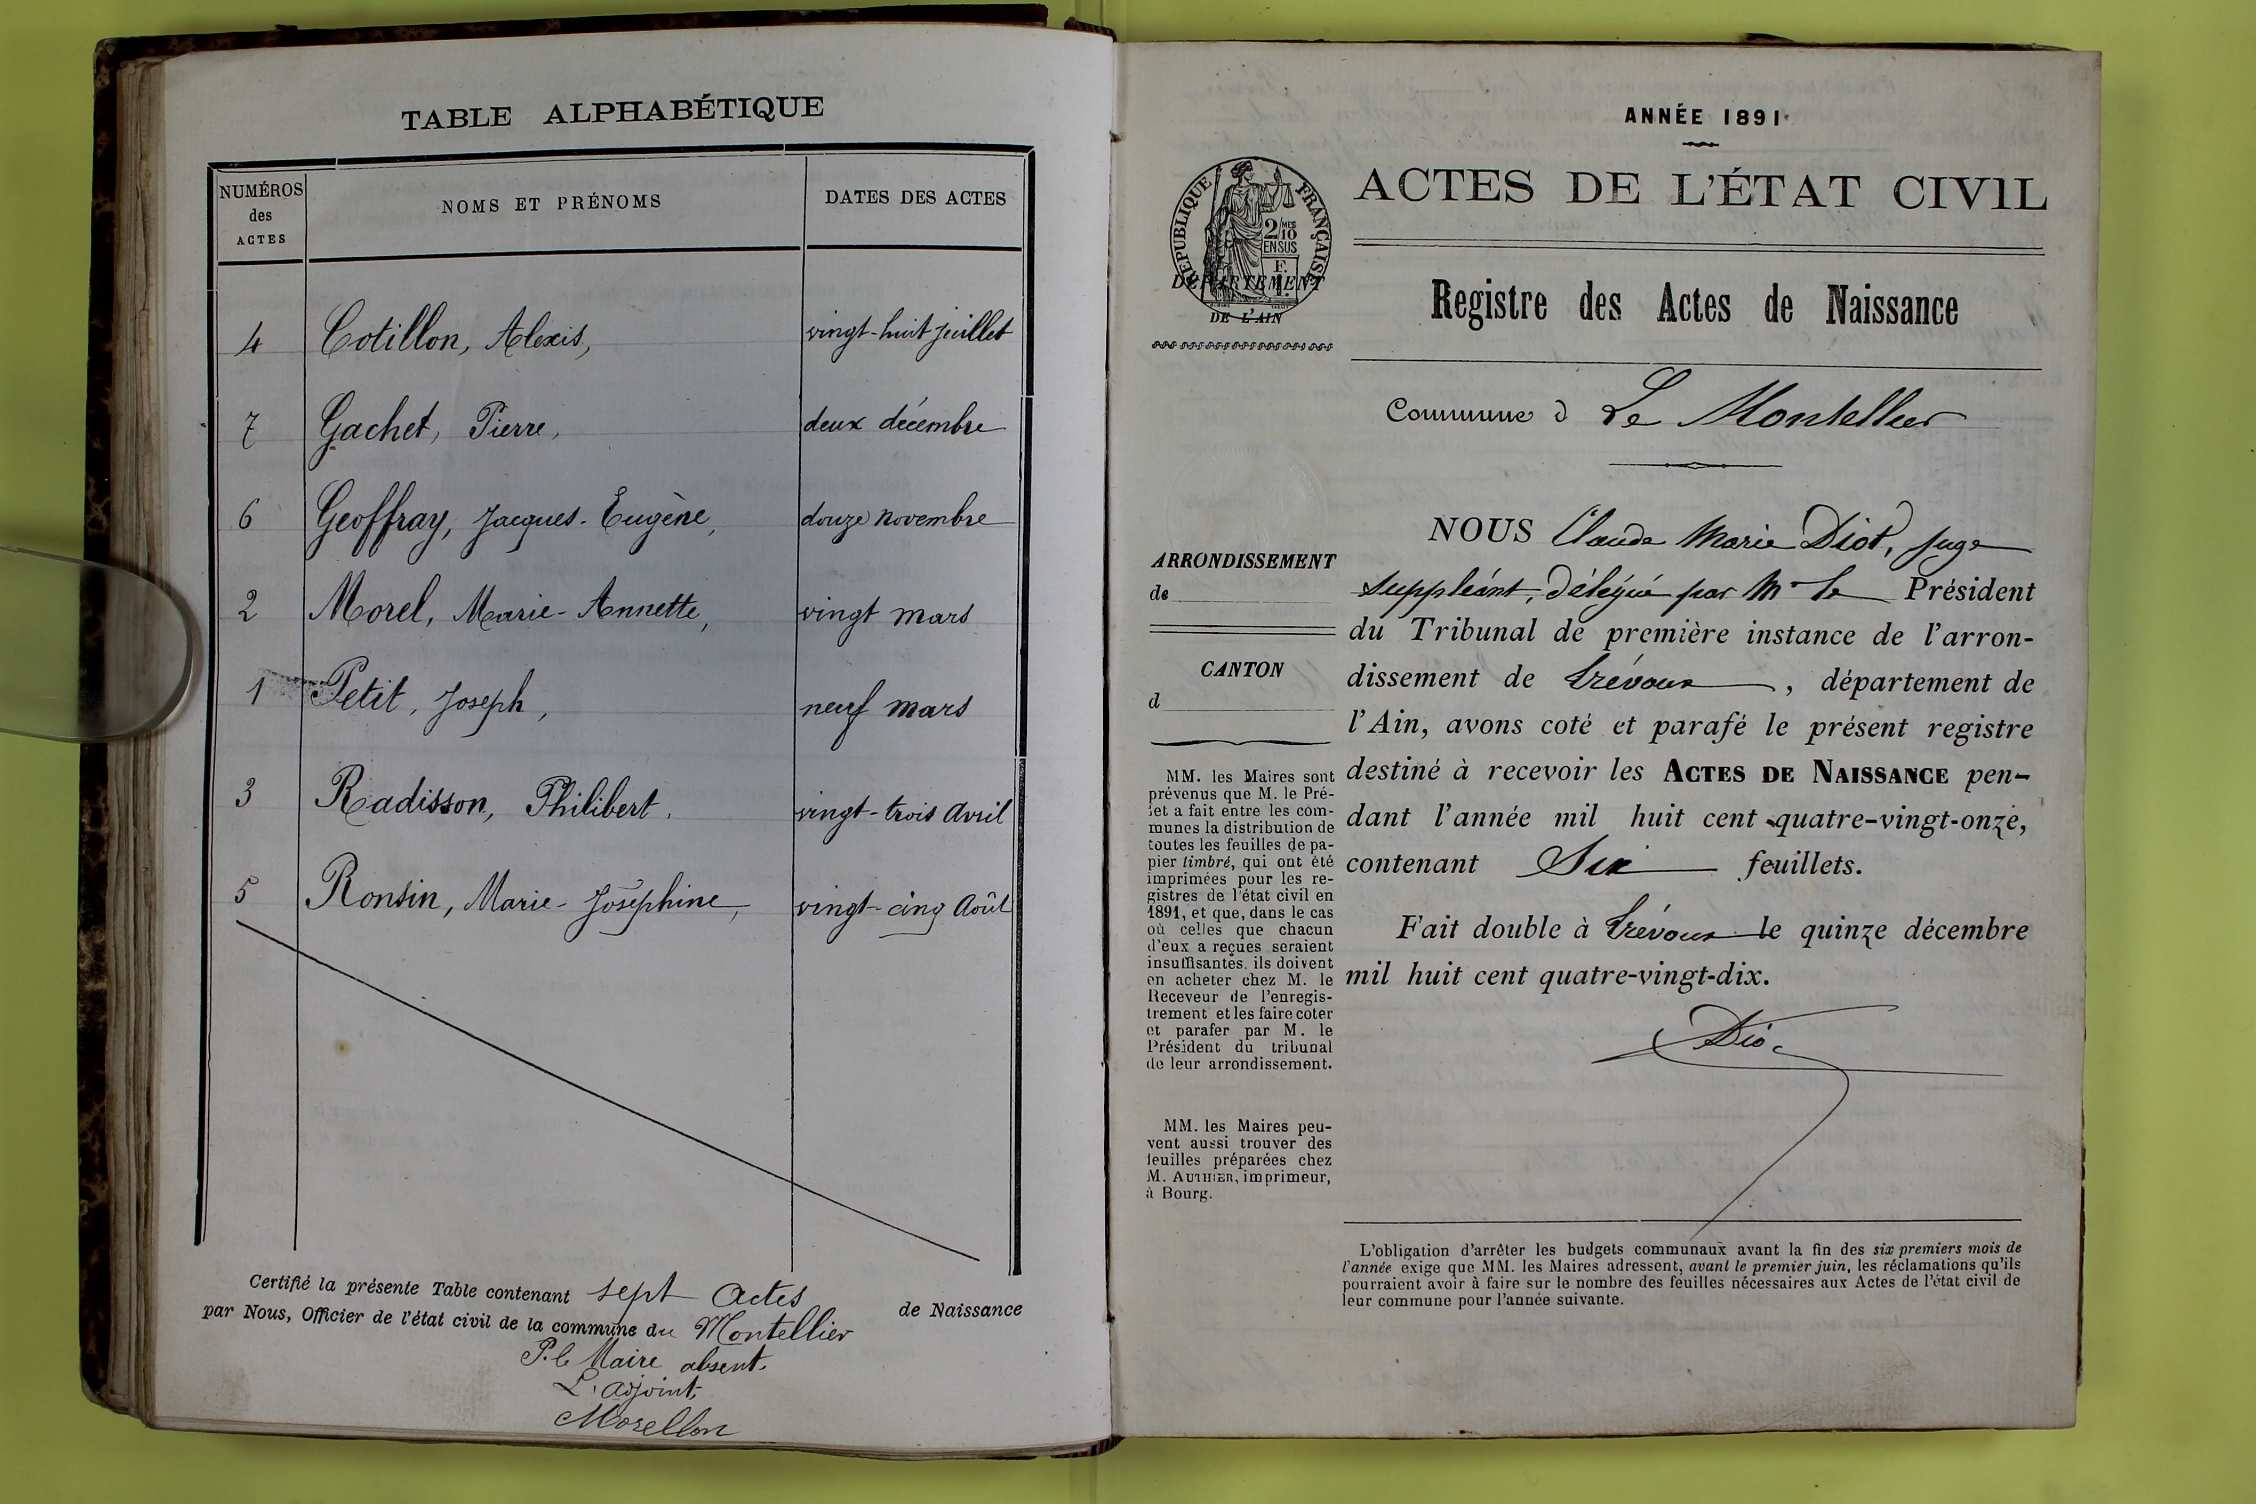 TABLE ALPHABÉTIQUE
NUMÉROS des ACTES NOMS ET PRÉNOMS DATES DES ACTES
4 Cotillon, Alexis, vingt-huit juillet
7 Gachet, Pierre, deux décembre
6 Geoffray, Jacques-Eugène, douze novembre
2 Morel, Marie-Annette, vingt mars
1 Petit, Joseph, neuf mars
3 Radisson, Philibert. vingt-trois Avril
5 Ronsin, Marie-Joséphine, vingt-cinq Août
Certifié la présente Table contenant sept actes de Naissance
par Nous, Officier de l'état civil de la commune du Montellier
P. le Maire absent.
L'adjoint,
Morellon
ANNÉE 1891
RÉPUBLIQUE FRANÇAISE
2/10 MES
EN SUS
F.
DÉPARTEMENT
DE L'AIN
ACTES DE L'ÉTAT CIVIL
Registre des Actes de Naissance
Commune d Le Montellier
ARRONDISSEMENT
de
CANTON
d
MM. les Maires sont
prévenus que M. le Pré-
fet a fait entre les com-
munes la distribution de
toutes les feuilles de pa-
pier timbré, qui ont été
imprimées pour les re-
gistres de l'état civil en
1891, et que, dans le cas
où celles que chacun
d'eux a reçues seraient
insuffisantes, ils doivent
en acheter chez M. le
Receveur de l'enregis-
trement et les faire coter
et parafer par M. le
Président du tribunal
de leur arrondissement.
MM. les Maires peu-
vent aussi trouver des
feuilles préparées chez
M. AUTHIER, imprimeur,
à Bourg.
NOUS Claude Marie Diot, juge
suppléant, délégué par Mr le Président
du Tribunal de première instance de l'arron-
dissement de Trévoux, département de
l'Ain, avons coté et parafé le présent registre
destiné à recevoir les ACTES DE NAISSANCE pen-
dant l'année mil huit cent quatre-vingt-onze,
contenant Six feuillets.
Fait double à Trévoux le quinze décembre
mil huit cent quatre-vingt-dix.
Diot
L'obligation d'arrêter les budgets communaux avant la fin des six premiers mois de
l'année exige que MM. les Maires adressent, avant le premier juin, les réclamations qu'ils
pourraient avoir à faire sur le nombre des feuilles nécessaires aux Actes de l'état civil de
leur commune pour l'année suivante.